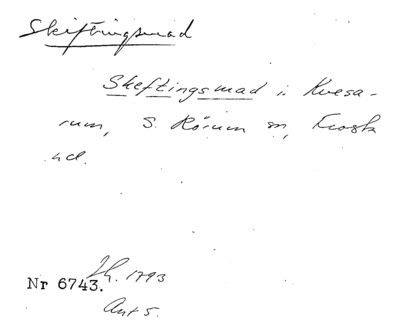 Skiftingsmad
Skeftingsmad i Kvesa-
rum, S. Rörum sn, Frosta
hd.
Nr 6743.
1793
Akt 5.